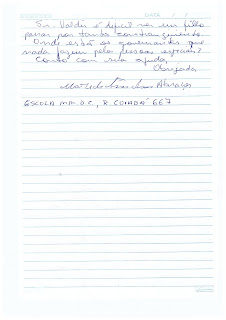 Sr. Valdir é difícil ver um filho
passar por tanto constrangimento.
Onde estão os governantes que
nada fazem pelas pessoas especiais?
Conto com sua ajuda,
Obrigada
Abraços
ESCOLA M R. COIADA 667